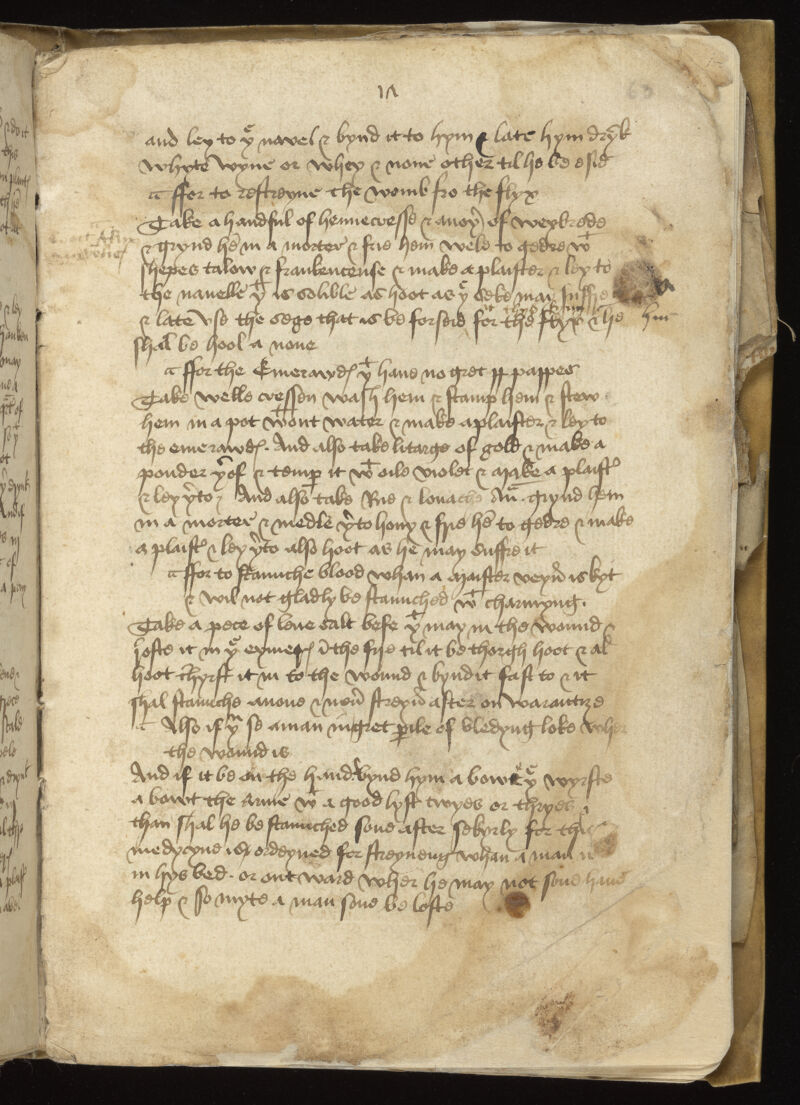 and ley to þͤ navel & bynd it to hym & late hym drȳk
whyte wyne or whey & none other til he be esid
¶ ffor to restreyne the womb fro the flyx
Take a handful of hennecresse & anoþ̉ of weybrede
& grynd hē in a morter & frie hem wele to gedre wͭ
shepes talow & frankencense & make a plaister & ley to
the navelle þͭ is solible as hoot as þͤ seke may suffre
& late vse the sege that is be forseid for the flyx & he
shal be hool a none
¶ ffor the Emerawdꝭ þͭ haue no gret pappes
Take welle cressen wash hem & stamp hem & stew
hem in a pot wͭout water & make a plaister & ley to
the emerawdꝭ. And also take litarge of gold & make a
pouder þ̉of & temp̉ it wͭ oile violet & make a plaist̉
& ley þ̉to, And also take Rue & louache Añ. grynd hem
in a morter & medle þ̉to hony & frie hē to gedre & make
a plaist̉ & ley þ̉to also hoot as he may suffre it
¶ ffor to staunche blood whan a maister veyn̄ is kyt
& wil not gladly be staunched wͭ charmyng.
Take a pece of lene salt befe þͭ may in the wound &
roste it in þͤ eymeꝭ ī the fire til it be thorgh hoot & al
hoot thyrst it in to the wound & bynd it fast to & it
shal staunche anone & neủ streyn̄ after on warantize
¶ Also if þ̉ se a man in gret ꝑile of bledyng loke wher
the wound is
And if it be on the hand bynd hym a bowt þͤ wyrste
a bowt the arme wͭ a good lyst twyes or thryes
than shal he be staunched sone after sekyrly for this
medycyne is ordeyned for streyneng whan a man is
in hys bed. or out ward wher he may not sone haue
help & so myte a man sone be loste